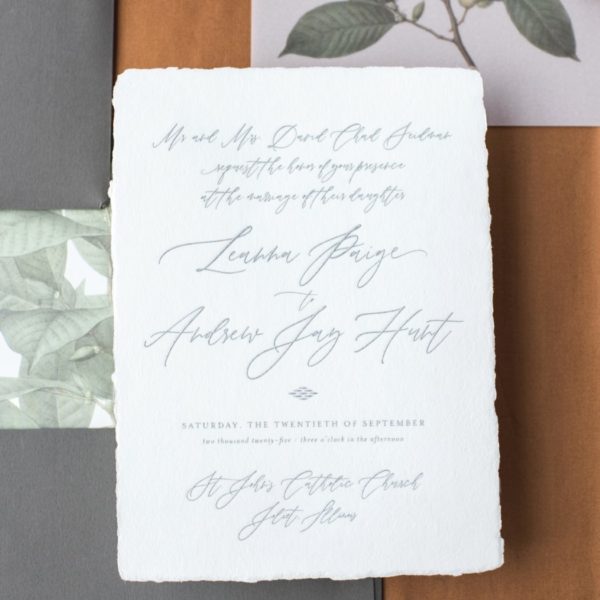 Mr and Mrs. David Chad Seidman
request the honor of your presence
at the marriage of their daughter
Leanna Paige
to
Andrew Jay Hunt
SATURDAY, THE TWENTIETH OF SEPTEMBER
two thousand twenty-five / three o'clock in the afternoon
St John's Catholic Church
Joliet, Illinois